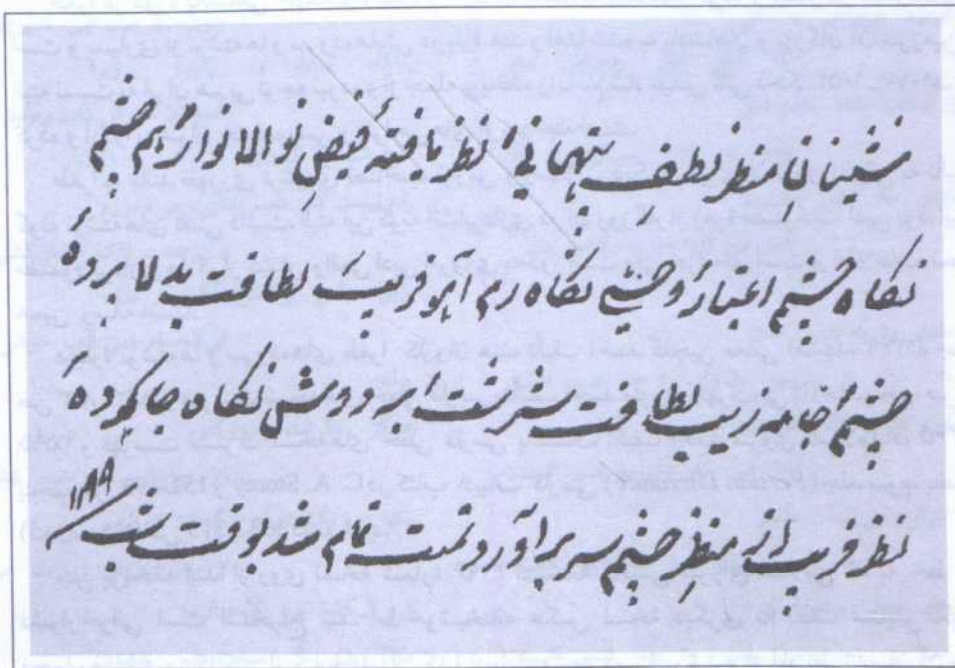 نشینان منظر لطف پنهانی نظر یافته فیض نوالانوار هم چشم
نگاه چشم اعتبار وحشی نگاه رم آهو فریب لطافت بدلا برده
چشم جامه زیب لطافت سرشت به دوش نگاه جا کرده
نظر فریب از منظر چشم سر برآورد تمت تمام شد بوقت شب ۱۱۹۹